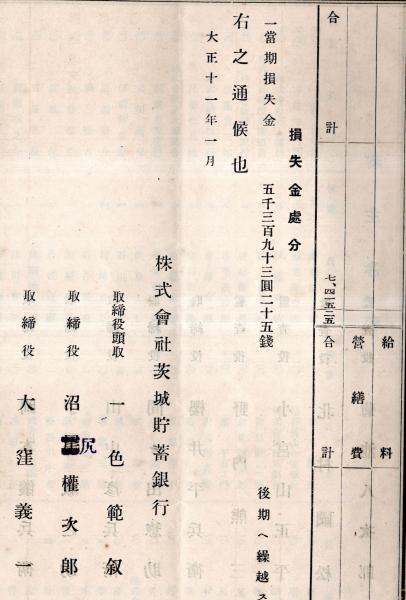 給料
營繕費
合計 七、四一五二五 合計
損失金處分
一當期損失金 五千三百九十三圓二十五錢 後期へ繰越る
右之通候也
大正十一年一月
株式會社茨城貯蓄銀行
取締役頭取 一色範叙
取締役 沼尻權次郎
取締役 大窪義一